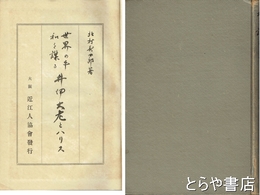 北村寿四郎著
世界の平
和を謀る 井伊大老とハリス
大阪 近江人協會發行
とらや書店